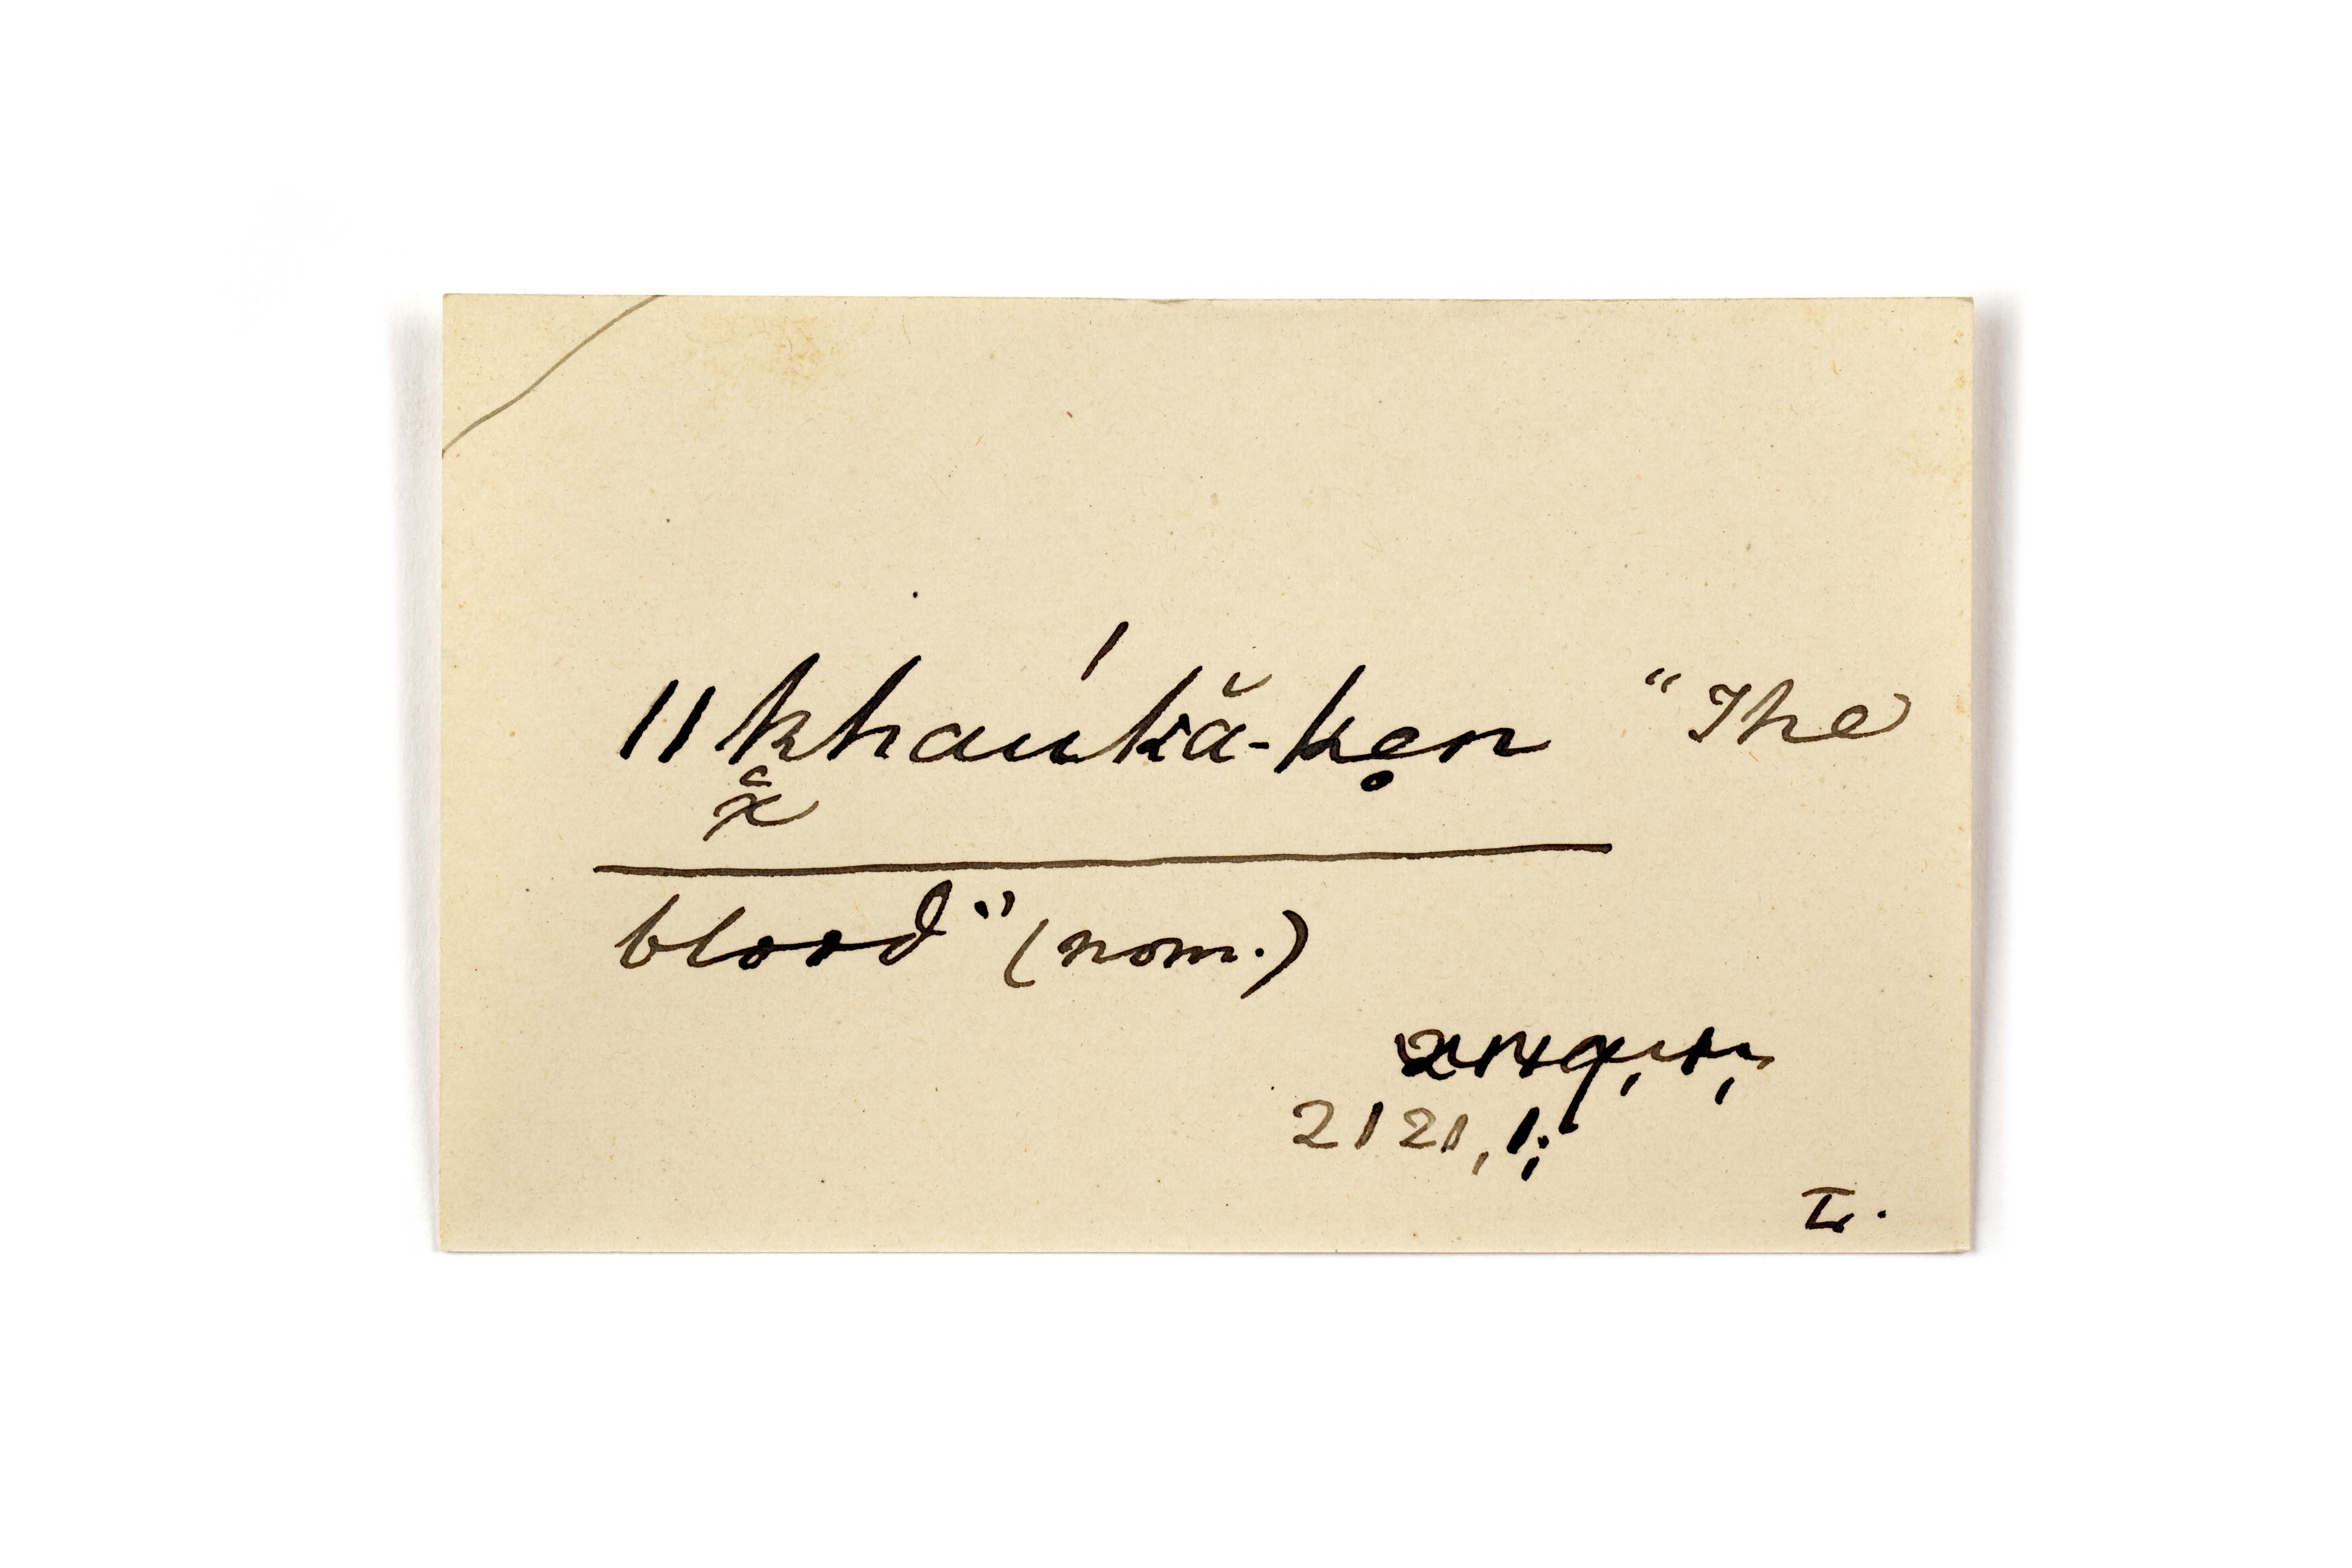 ǁk͓̆haúkă-kẹn "The
blood" (nom.)
2121, 1;
L.